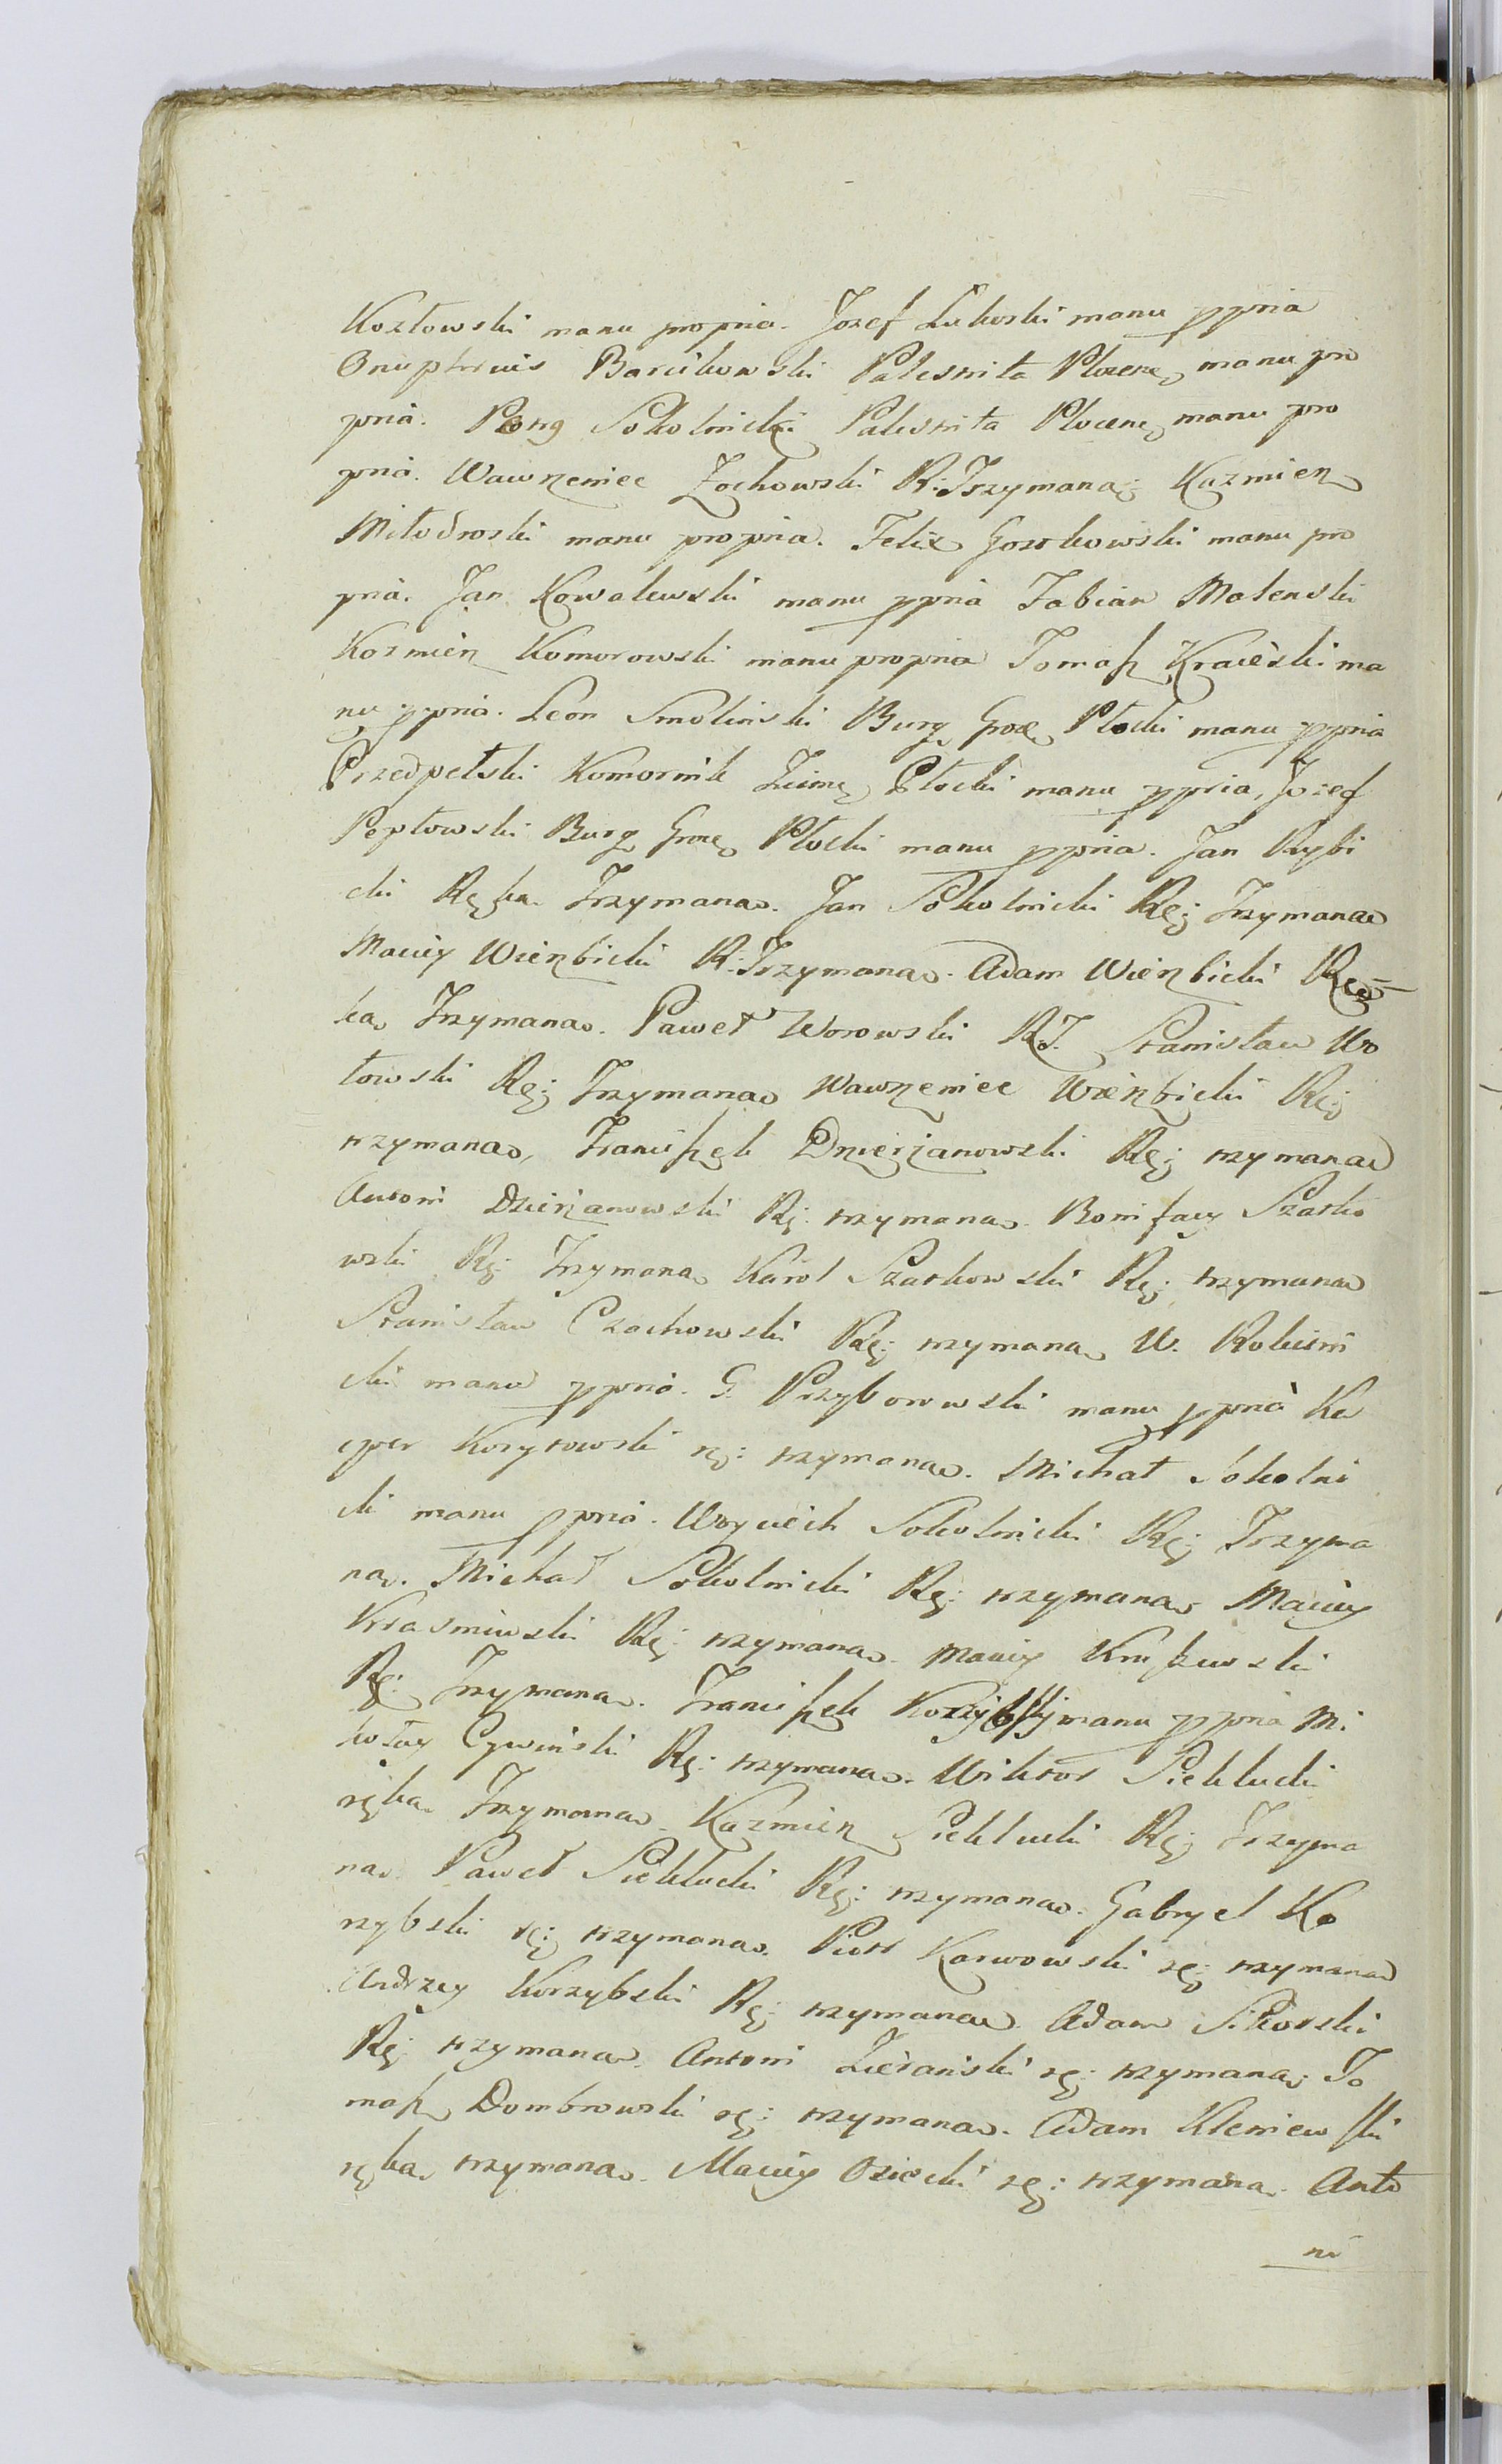 Kozłowski manu propria. Jozef Lukoski manu ppria
Onuphrius Barcikowski Palestrita Plocens manu pro
pria. Sokolnicki Palestrita Plocens manu pro
pria. Wawrzeniec Żochowski R: Trzymana: Kazmierz
Miłodroski manu propria. Felix Gorzkowski manu pro
pria. Jan Kowalewski manu ppria Fabian Molenski
Kazmierz Komorowski manu propria Tomasz Kraieski ma
nu ppria. Leon Smolinski Burg Grodz Płocki manu ppria
Przedpełski Komornik Ziems Płocki manu ppria, Jozef
Pepłowski Burg Grodz Płocki manu ppria. Jan Rybi
cki Ręka Trzymana. Jan Sokolnicki Rę; Trzymana
Maciey Wierzbicki R: Trzymana. Adam Wierzbicki Rę-
ka Trzymana. Paweł Worowski R.T. Stanisław Wo
łowski Rę; Trzymana Wawrzeniec Wierzbicki Rę;
trzymana, Franciszek Dzierżanowski Rę; trzymana
Antoni Dzierżanowski Rę: trzymana. Bonifacy Szatko
wski Rę: Trzymana Karol Szatkowski Rę; trzymana
Stanisław Czochowski Rę: trzymana W. Rokicni
cki manu ppria. G. Przyborowski manu ppria Ka
cper Korytowski rę: trzymana. Michał Sokolni
cki manu ppria. Woyciech Sokolnicki Rę; Trzyma
na. Michał Sokolnicki Rę: trzymana Maciey
Krasniewski Rę: trzymana. Maciey Kruszewski
Rę: Trzymana. Franciszek manu ppria Mi
kołay Cywiński Rę: trzymana. Wiktor Siekłucki
ręka Trzymana. Kazmierz Siekłucki Rę; Trzyma
na. Paweł Siekłucki Rę: trzymana. Gabryel Ko
rzybski rę: trzymana. Piotr Karwowski rę; trzymana
Andrzey Korzybski Rę; trzymana. Adam Sikorski
Rę; trzymana. Antoni Zierański rę; trzymana, To
masz Dombrowski rę; trzymana. Adam Kleniewski
ręka trzymana. Maciey Osiecki rę; trzymana. Anto
ni